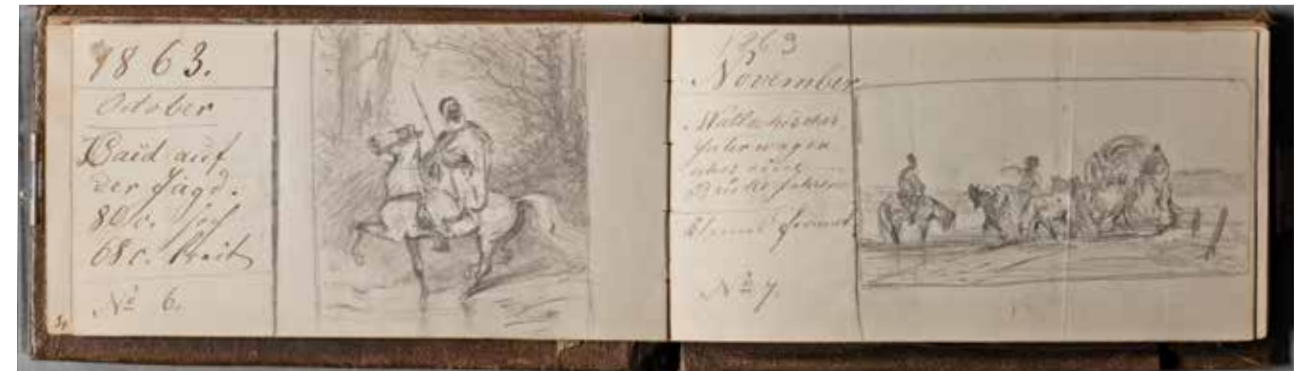 1863.
October
Caid auf
der Jagd.
80 c. hoch
68 c. breit
Nº 6.
1863
November
Wallachischer
eine
Brücke fahren
kleines Format
Nº 7.